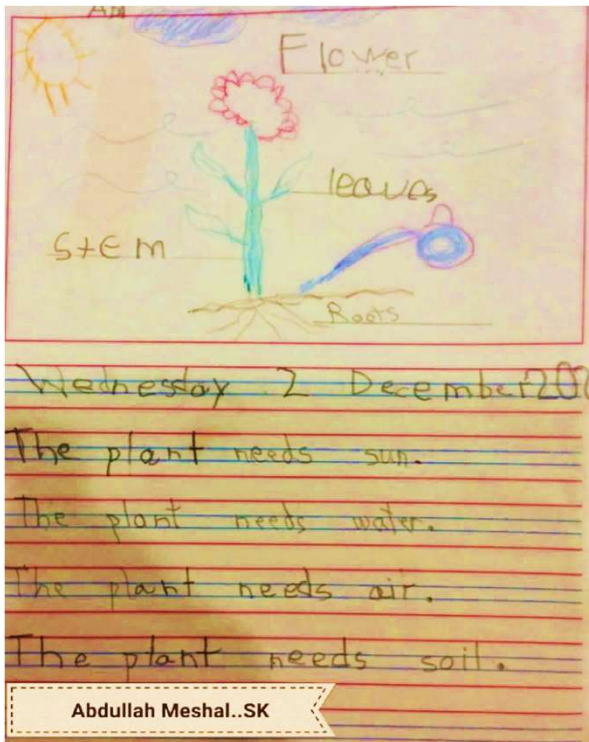 Air
Flower
leaves
Stem
Roots
Wednesday 2 December 202
The plant needs sun.
The plant needs water.
The plant needs air.
The plant needs soil.
Abdullah Meshal..SK